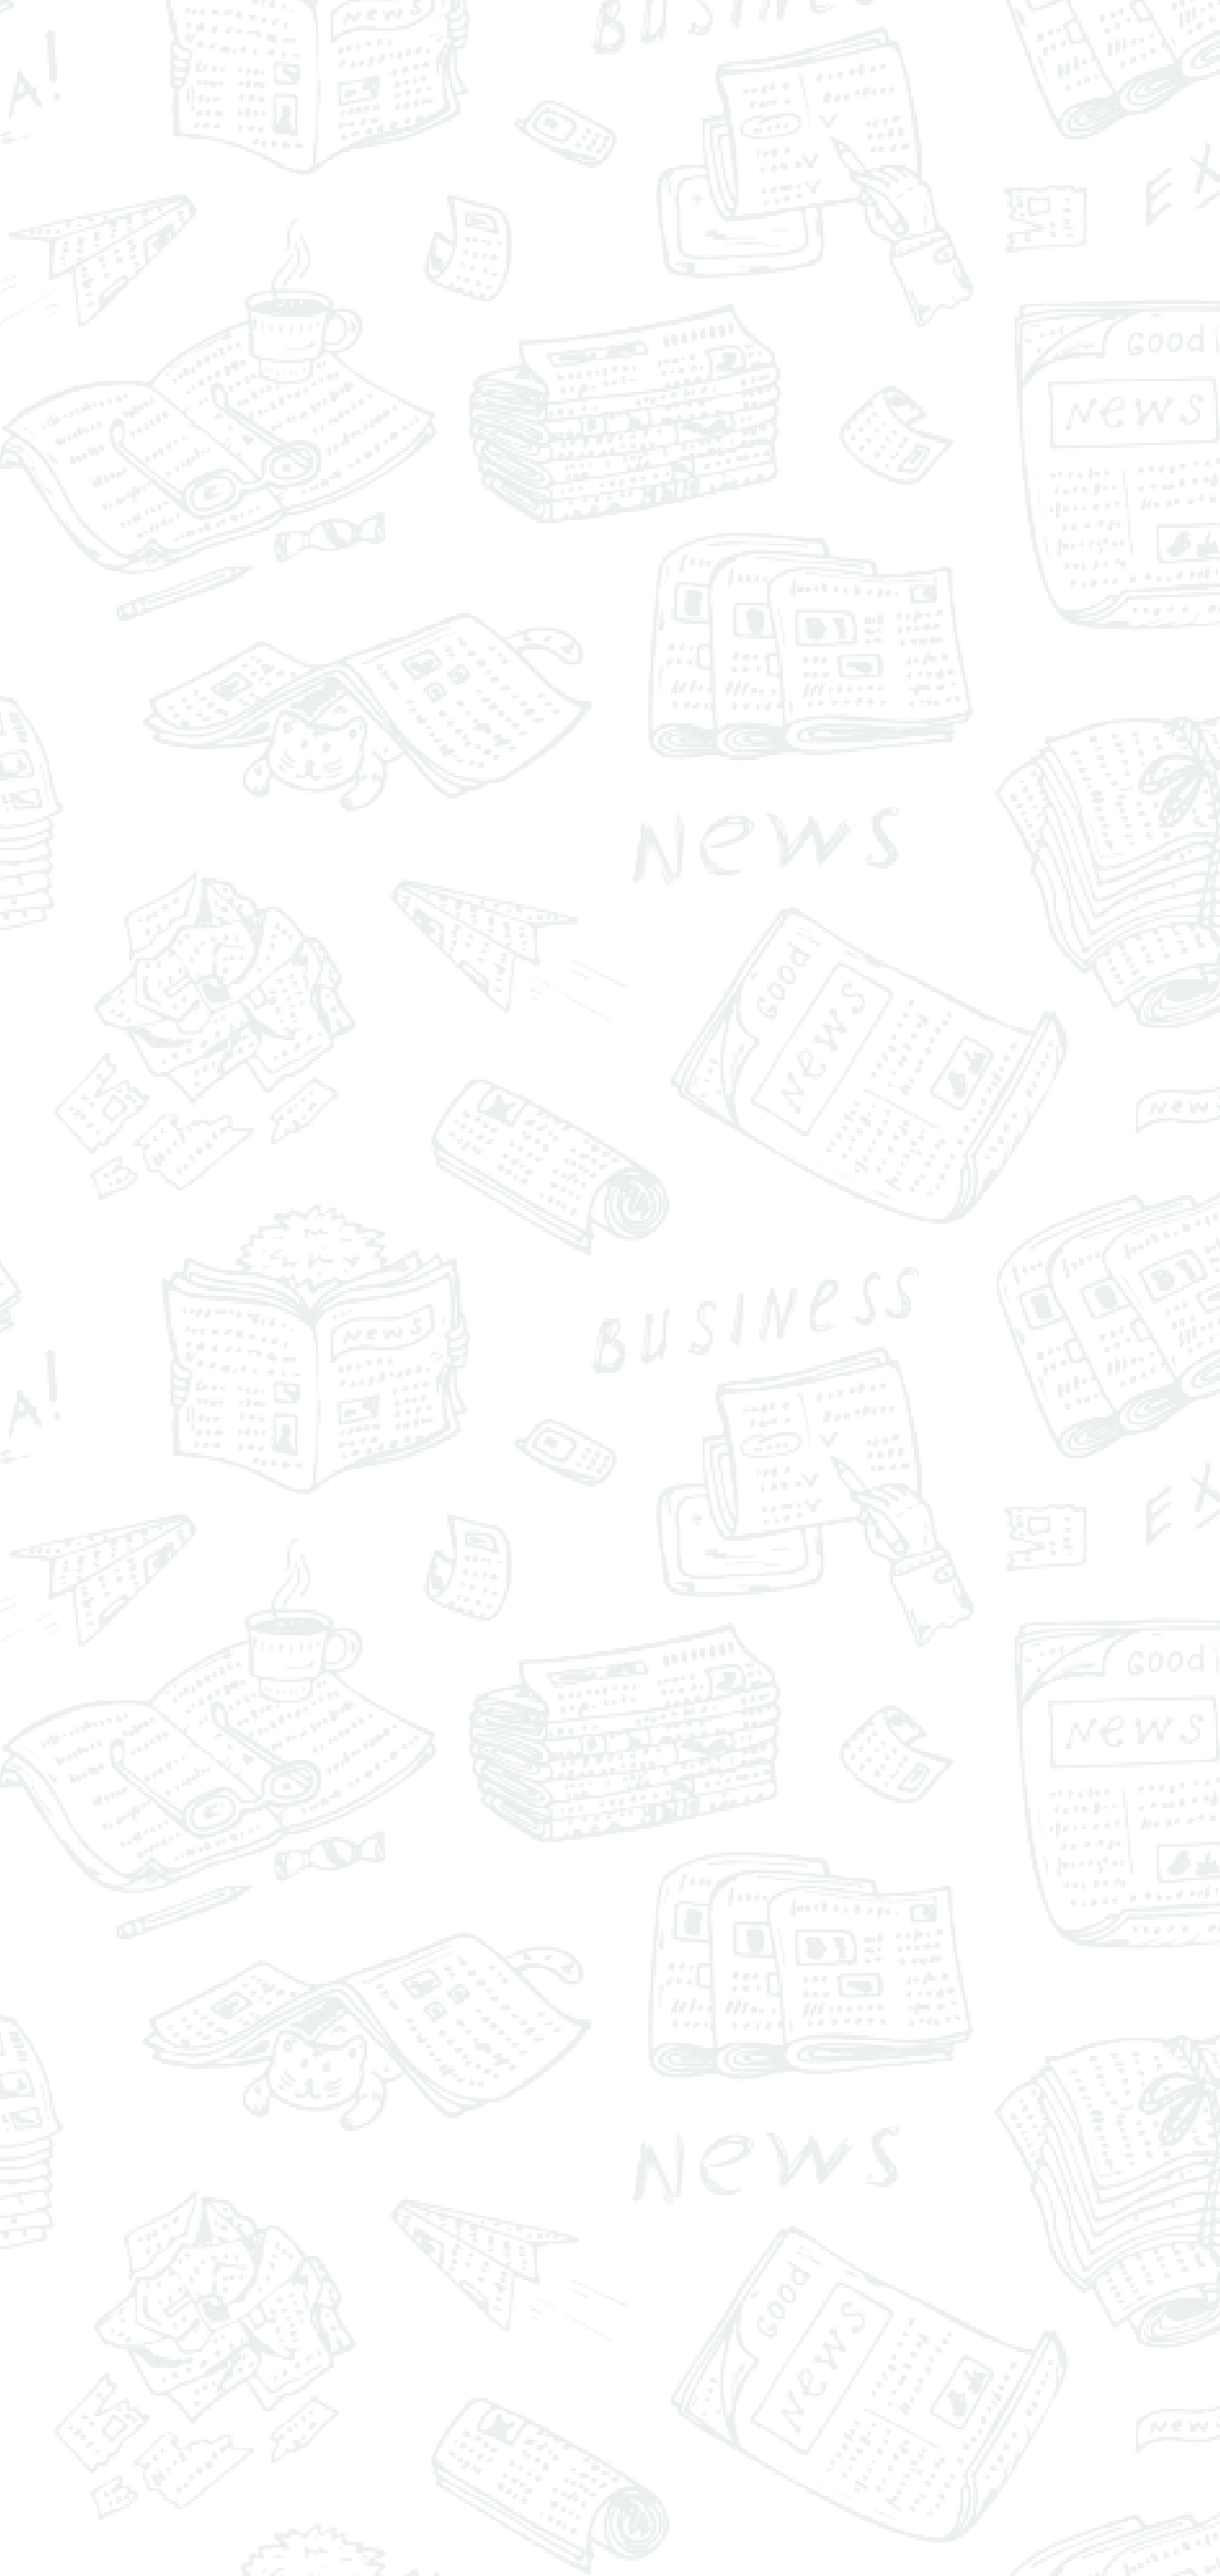 NEWS
BUSIN
A!
EX
GOOD
NEWS
NEWS
GOOD
NEWS
NEW
BUSINESS
NEWS
A!
EX
GOOD
NEWS
NEWS
GOOD
NEWS
NEW